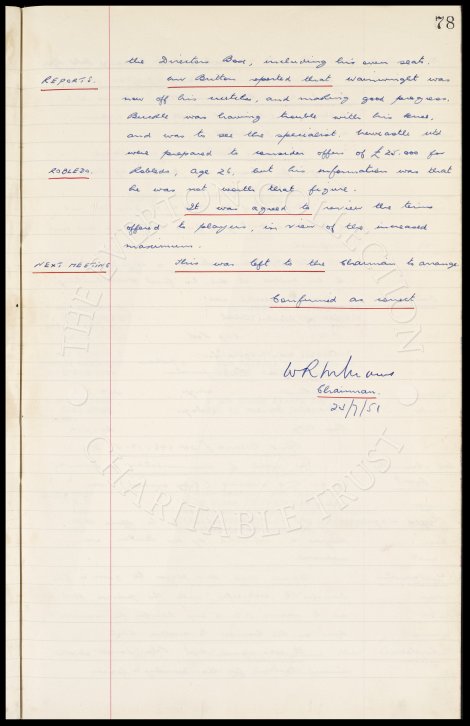 78
the Directors Box, including his own seat.
REPORTS. Mr Britton reported that Wainwright was
now off his crutches, and making good progress.
was having trouble with his knee,
and was to see the specialist. Newcastle Utd
were prepared to consider offers of £25,000 for
ROBLEDO. Robledo, age 26, but his information was that
he was not worth that figure.
It was agreed to review the terms
offered to players, in view of the increased
maximum.
NEXT MEETING This was left to the Chairman to arrange
Confirmed as correct
Chairman.
/7/51
THE EVERTON COLLECTION
CHARITABLE TRUST